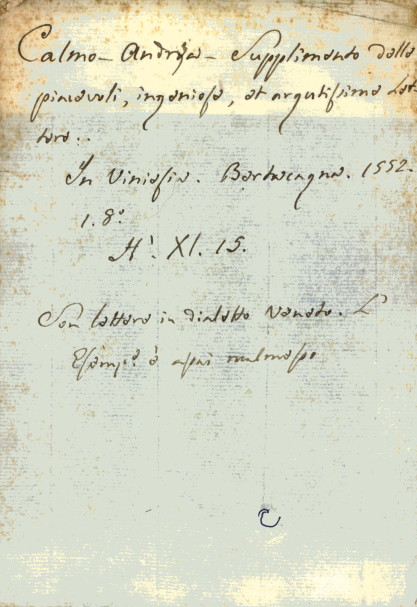 Calmo - Andrea - Supplimento delle
piacevoli, ingeniose, et argutissime Let-
tere..
In Vinesia. Bertacagno. 1552.
1. 8.º
H. XI. 15.
Son lettere in dialetto Veneto. L'
Esemp.e è assai malmesso
C